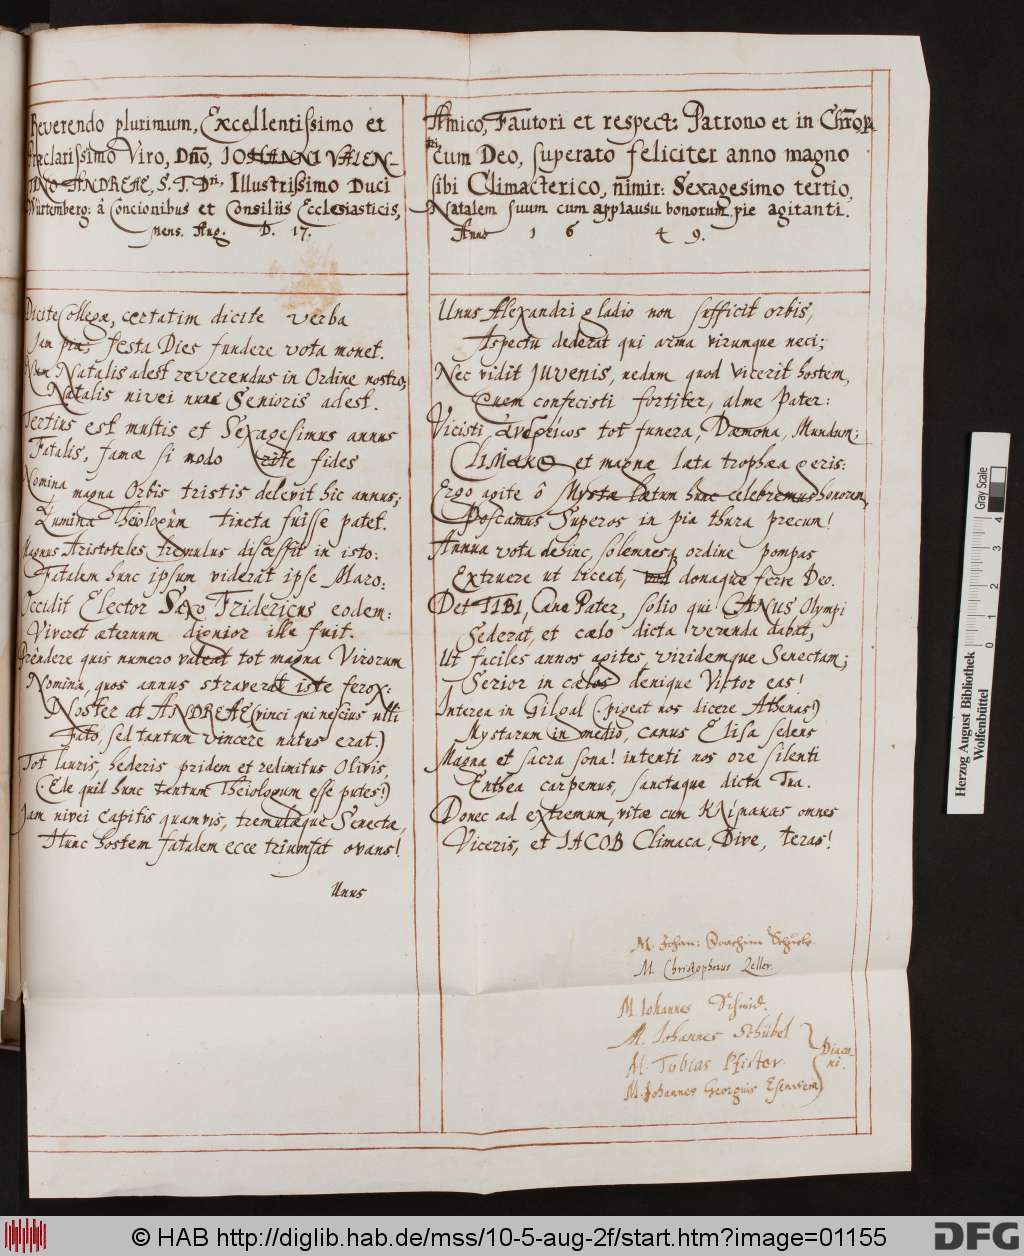 Reverendo plurimum, Excellentissimo et
Praeclarissimo Viro, Dño, IOHANNI VALEN-
TINO ANDREAE, S. T. D.ri, Illustrissimo Duci
Würtemberg: â Concionibus et Consiliis Ecclesiasticis,
mens. Aug. D. 17.
Amico, Fautori et respect: Patrono et in Chro
cum Deo, superato feliciter anno magno
sibi Climacterico, nimir: Sexagesimo tertio,
Natalem suum cum applausu bonorum pie agitanti.
Anno 1 6 4 9.
Dicite Collegae, certatim dicite verba
Jam pia; festa Dies fundere vota monet.
Nam Natalis adest reverendus in Ordine nostro;
Natalis nivei nunc Senioris adest.
Tertius est multis et Sexagesimus annus
Fatalis, famae si modo rite fides
Nomina magna Orbis tristis delevit hic annus;
Lumina Theologûm tincta fuisse patet.
Magnus Aristoteles tremulus discessit in isto:
Fatalem hunc ipsum viderat ipse Maro:
Occidit Elector Saxo Fridericus eodem:
Viveret aeternum dignior ille fuit.
Prêndere quis numero valeat tot magna Virorum
Nomina, quos annus straverat iste ferox:
Noster at ANDREAE (vinci qui nescius ulli
Fato, sed tantum vincere natus erat.)
Tot lauris, hederis pridem et redimitus Olivis,
(Ede quid hunc tantum Theiologum esse putes!)
Jam nivei capitis quamvis, tremulaeque Senectae,
Hunc hostem fatalem ecce triumfat ovans!
Unus
Unus Alexandri gladio non sufficit orbis,
Aspectu dederat qui arma virumque neci;
Nec vidit JUVENIS, nedum quod vicerit hostem,
Quem confecisti fortiter, alme Pater:
Vicisti tot funera, Daemona, Mundum;
et magnae laeta trophaea geris:
Ergo agite ô Mystae laetum hunc celebremus honorem,
Poscamus Superos in pia thura precum!
Annua vota dehinc, solemnesq ordine pompas
Extruere ut liceat, donaque ferre Deo.
Det TIBI, Cane Pater, solio qui CANUS Olympi
Sederat, et caelo dicta verenda dabat,
Ut faciles annos agites viridemque Senectam;
Serior in caelos denique Victor eas!
Interea in Gilgal (pigeat nos dicere Athenas!)
Mystarum in medio, canus Elisa sedens
Magna et sacra sona! intenti nos ore silenti
Enthea carpemus, sanctaque dicta Tua.
Donec ad extremum, vitae cum Κλίμακας omnes
Viceris, et JACOB Climaca, Dive, teras!
M. Johan: Joachim
M. Christophorus Zeller.
M. Iohannes Schmid.
M. Iohannes Schübel
M. Tobias Pfister
M. Johannes Georgius
Diaco-
ni.
Herzog August Bibliothek
Wolfenbüttel
0 1 2 3 4
Gray Scale
© HAB http://diglib.hab.de/mss/10-5-aug-2f/start.htm?image=01155
DFG